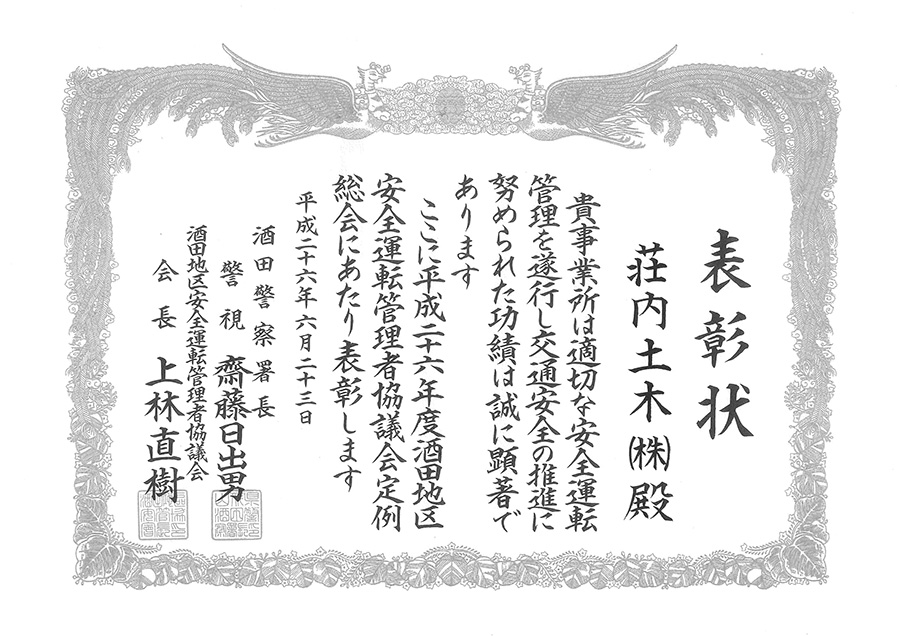 表彰状
荘内土木㈱殿
貴事業所は適切な安全運転
管理を遂行し交通安全の推進に
努められた功績は誠に顕著で
あります
ここに平成二十六年度酒田地区
安全運転管理者協議会定例
総会にあたり表彰します
平成二十六年六月二十三日
酒田警察署長
警視 齋藤日出男
酒田地区安全運転管理者協議会
会長 上林直樹